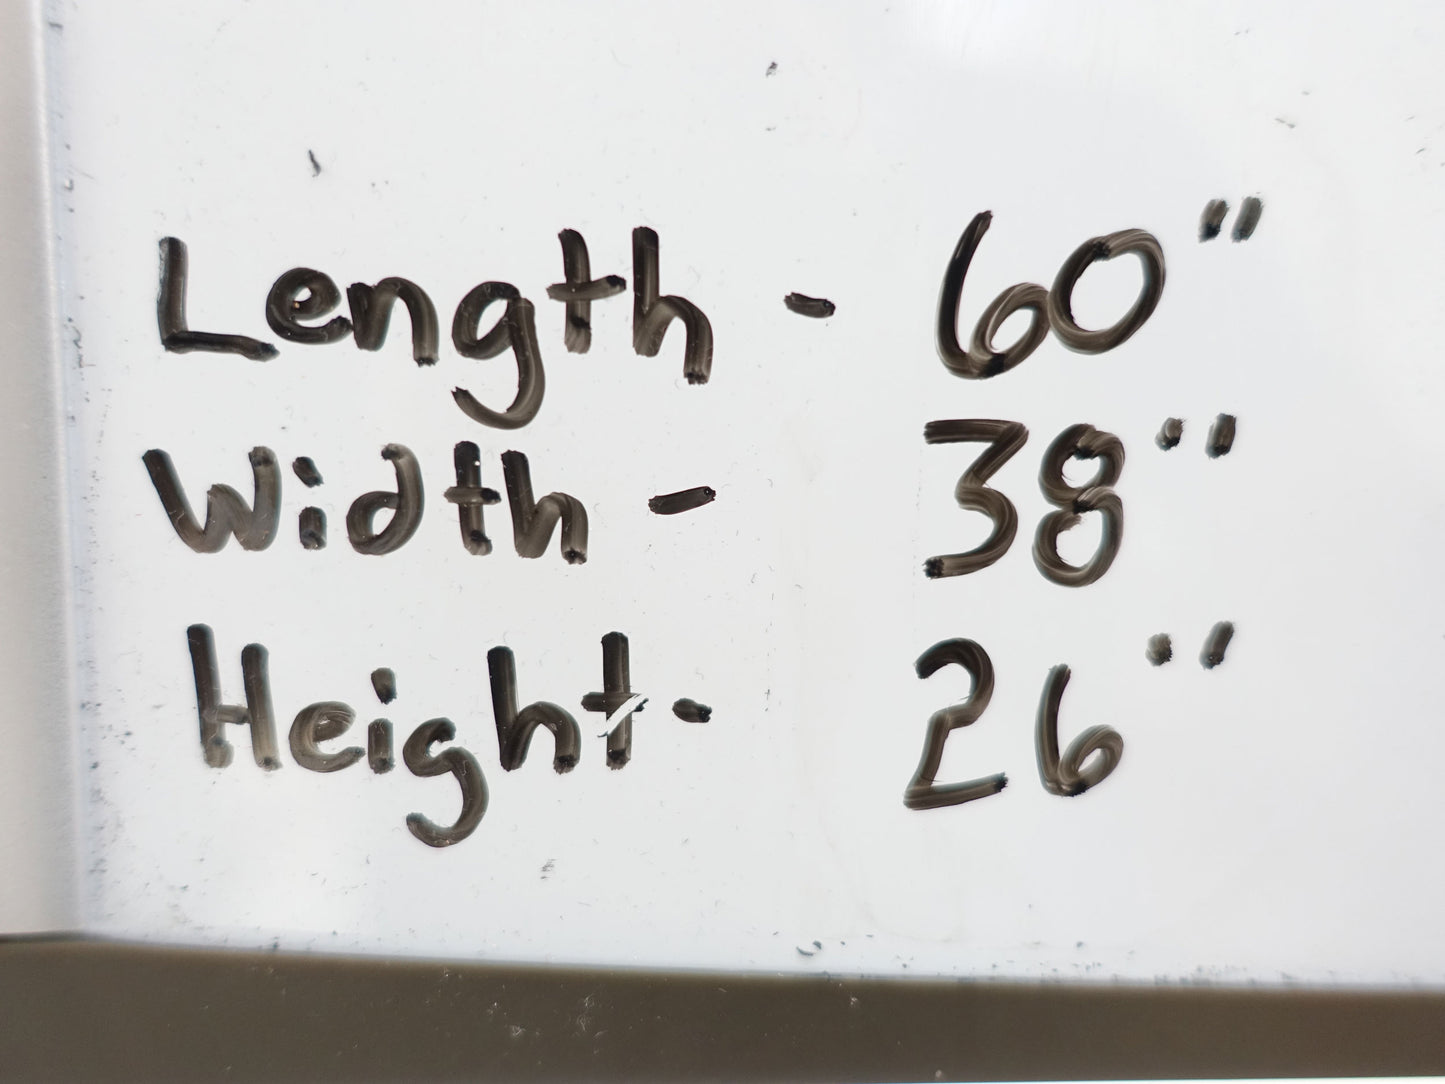 Length - 60"
Width - 38"
Height - 26"